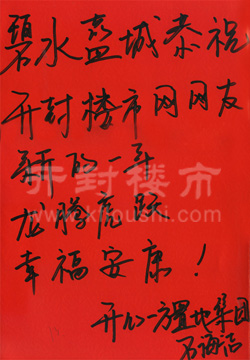 碧水蓝城恭祝
开封楼市网网友
新的一年
龙腾虎跃
幸福安康！
开封楼市
www.kfloushi.com
置地集团